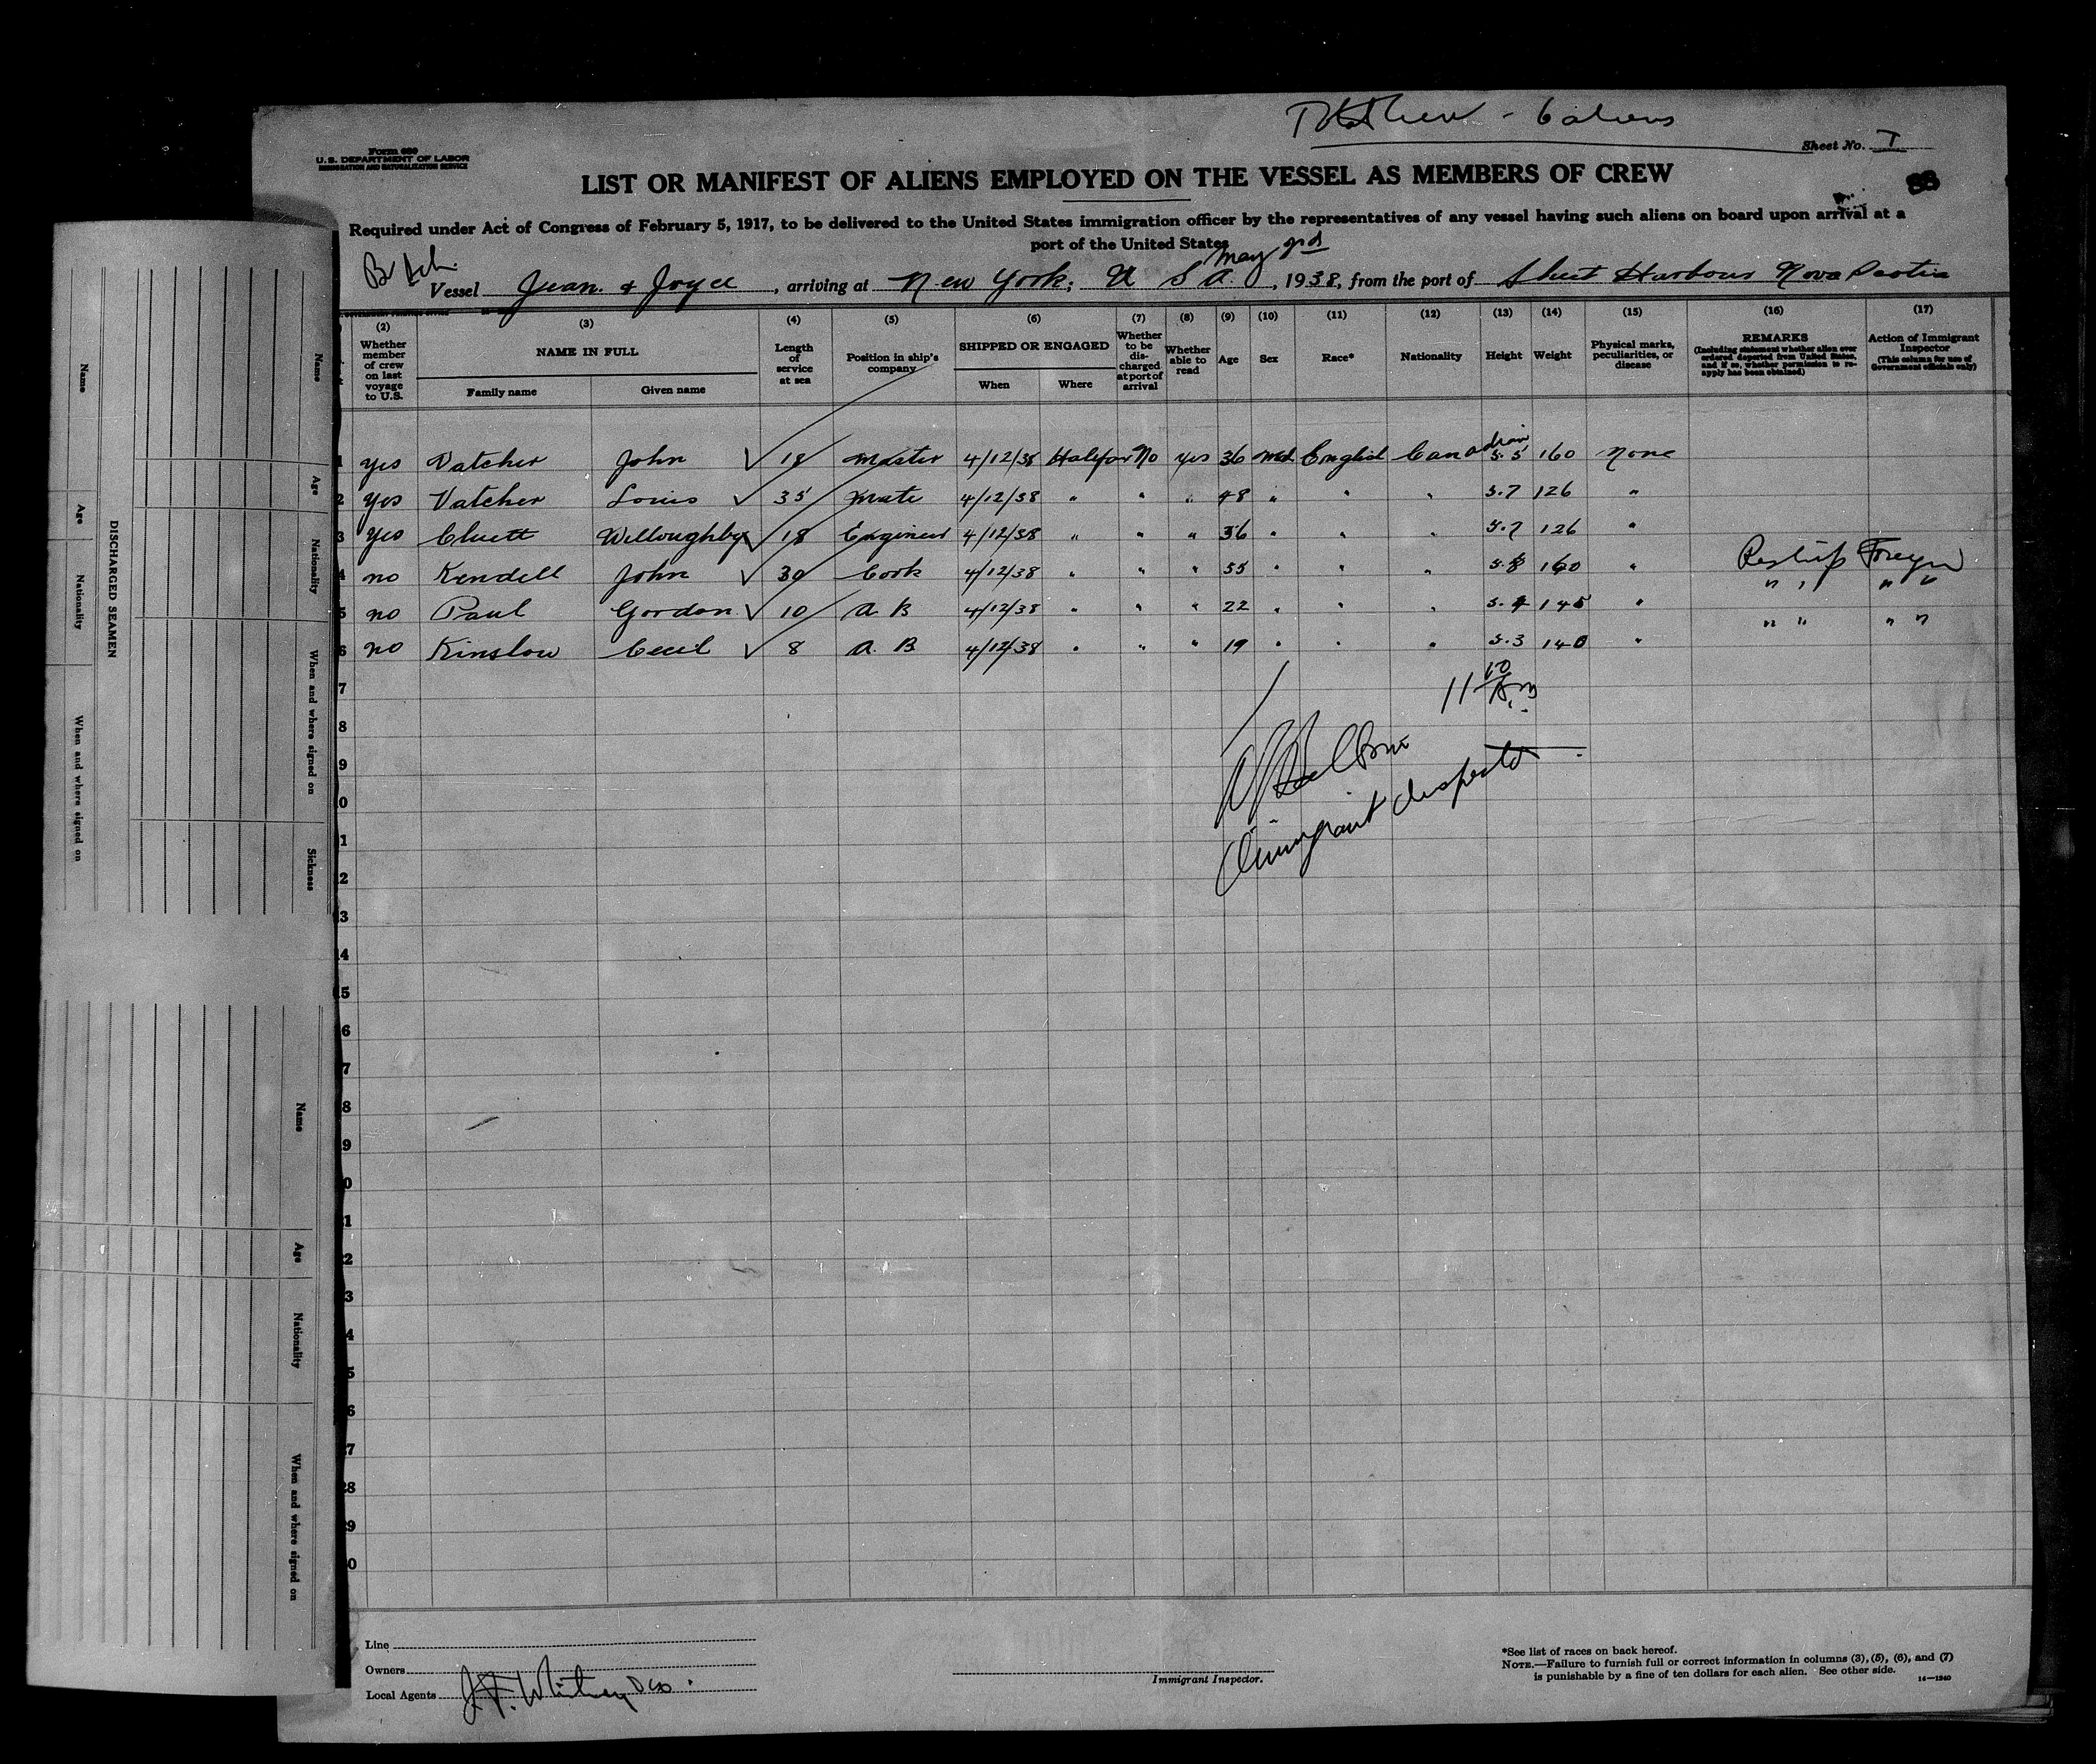 6 aliens
Form 680
U. S. DEPARTMENT OF LABOR
IMMIGRATION AND NATURALIZATION SERVICE
Sheet No. 1
LIST OR MANIFEST OF ALIENS EMPLOYED ON THE VESSEL AS MEMBERS OF CREW
88
Required under Act of Congress of February 5, 1917, to be delivered to the United States immigration officer by the representatives of any vessel having such aliens on board upon arrival at a
port of the United States
Vessel Jean & Joyce, arriving at New York, U S A. May 3rd, 1938, from the port of Sheet Harbour Nova Scotia
(2) (3) (4) (5) (6) (7) (8) (9) (10) (11) (12) (13) (14) (15) (16) (17)
Whether member of crew on last voyage to U.S.
NAME IN FULL
Family name
Given name
Length of service at sea
Position in ship's company
SHIPPED OR ENGAGED
When
Where
Whether to be discharged at port of arrival
Whether able to read
Age
Sex
Race*
Nationality
Height
Weight
Physical marks, peculiarities, or disease
REMARKS
(Including statement whether alien ever ordered deported from United States, and if so, whether permission to reapply has been obtained)
Action of Immigrant Inspector
(This column for use of Government officials only)
1 yes Vatcher John ✓ 18 Master 4/12/38 Halifax No yes 36 English Canadian 5.5 160 None
2 yes Vatcher Louis ✓ 35 Mate 4/12/38 " " " 48 " " " 5.7 126 "
3 yes Cluett Willoughby ✓ 18 Engineer 4/12/38 " " " 36 " " " 5.7 126 "
4 no Kendell John ✓ 30 Cook 4/12/38 " " " 55 " " " 5.8 160 " Reship Foreign
5 no Paul Gordon ✓ 10 A. B 4/12/38 " " " 22 " " " 5.4 145 " " " " "
6 no Kinslow Cecil ✓ 8 A. B 4/12/38 " " " 19 " " " 5.3 140 " " " " "
7
8
9
0
1
2
3
4
5
6
7
8
9
0
1
2
3
4
5
6
7
28
9
0
Immigrant Inspector
Line
Owners
Local Agents J. F. Whitney & Co.
Immigrant Inspector.
*See list of races on back hereof.
NOTE.—Failure to furnish full or correct information in columns (3), (5), (6), and (7)
is punishable by a fine of ten dollars for each alien. See other side.
14—1240
DISCHARGED SEAMEN
Name
Age
Nationality
When and where signed on
Name
Age
Nationality
When and where signed on
Sickness
Name
Age
Nationality
When and where signed on